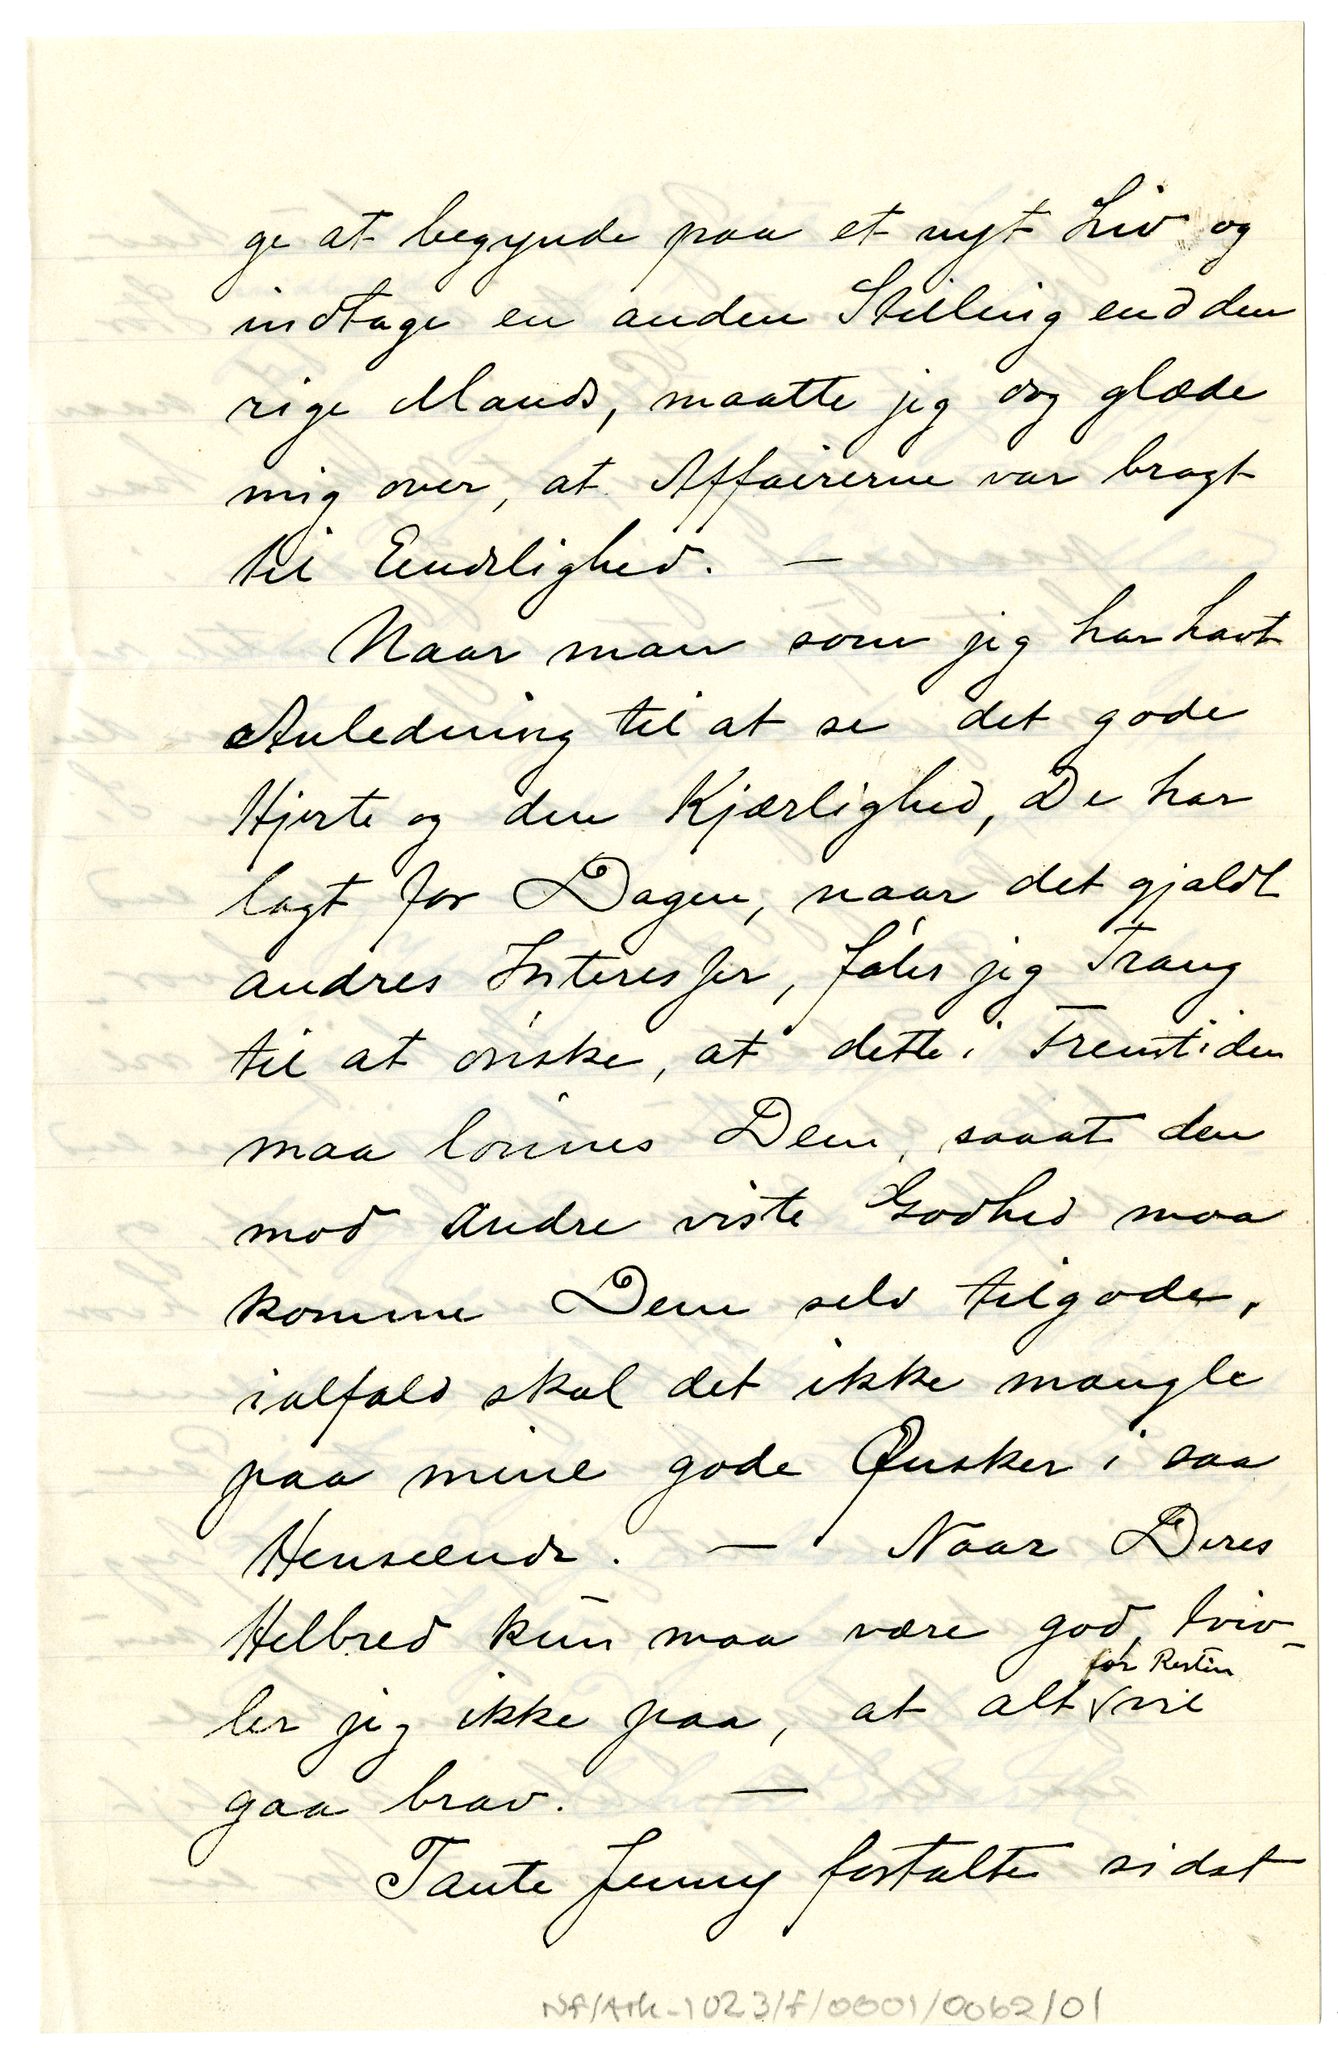 ge at begynde paa et nyt Liv og
indtage en anden Stilling end den
rige Mands, maatte jeg dog glæde
mig over, at Affairerne var bragt
til Endelighed. —
Naar man som jeg har havt
Anledning til at se det gode
Hjerte og den Kjærlighed, De har
lagt for Dagen, naar det gjaldt
andres Interesser, føler jeg Trang
til at ønske, at dette i Fremtiden
maa lønnes Dem, saaat den
mod Andre viste Godhed maa
komme Dem selv tilgode,
ialfald skal det ikke mangle
paa mine gode Ønsker i saa
Henseende. — Naar Deres
Helbred kun maa være god, tviv-
for Resten
ler jeg ikke paa, at alt vil
gaa brav. —
Tante Jenny fortalte sidst
NF/Ark-1023/F/0001/0062/01